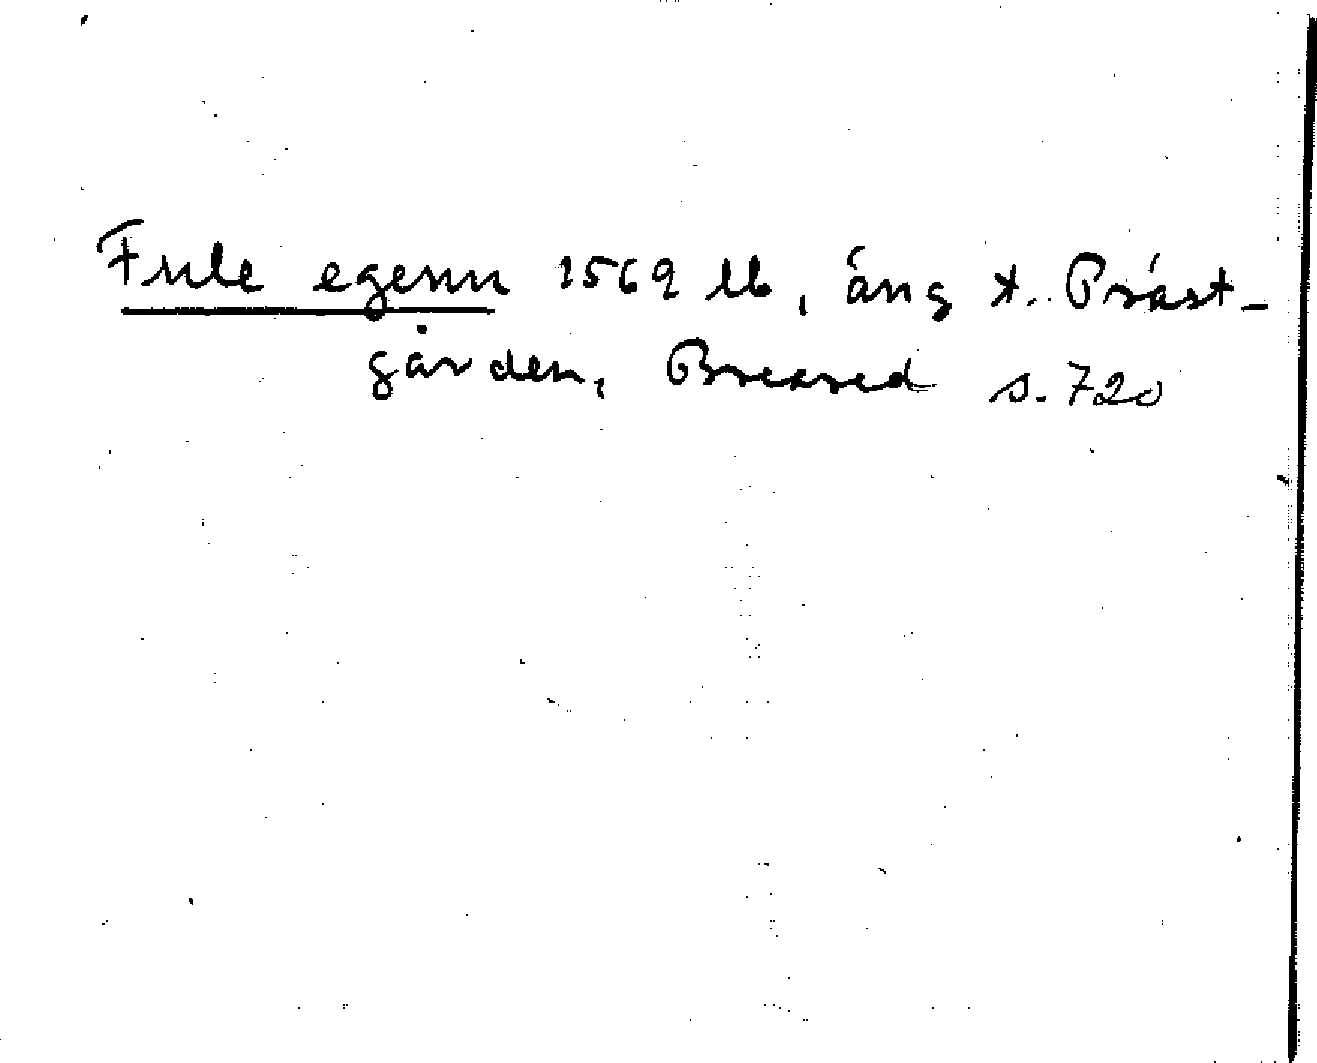 Fule egenn 1569 lb, äng t. Präst-
gården, Breared s. 720